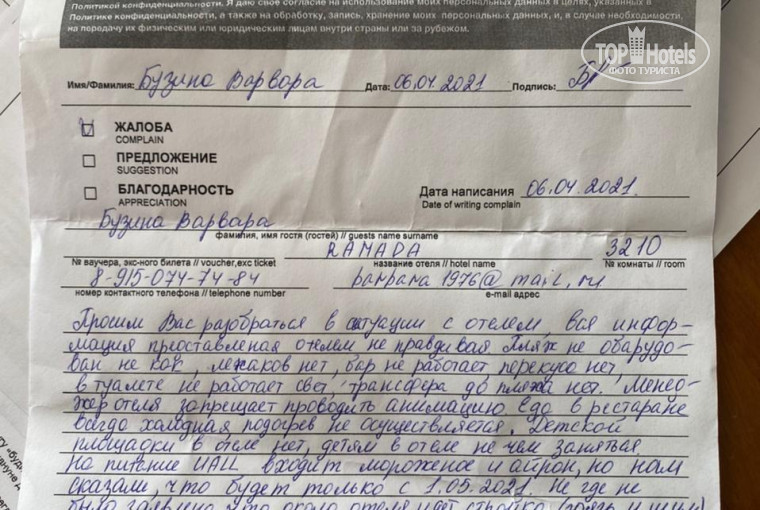 Политикой конфиденциальности. Я даю свое согласие на использование моих персональных данных в целях, указанных в
Политике конфиденциальности, а также на обработку, запись, хранение моих персональных данных, и, в случае необходимости,
на передачу их физическим или юридическим лицам внутри страны или за рубежом.
TOP Hotels
ФОТО ТУРИСТА
Имя/Фамилия: Бузина Варвора Дата: 06.04.2021 Подпись:
ЖАЛОБА
COMPLAIN
ПРЕДЛОЖЕНИЕ
SUGGESTION
БЛАГОДАРНОСТЬ
APPRECIATION
Дата написания 06.04.2021.
Date of writing complain
Бузина Варвара
фамилия, имя гостя (гостей) // guests name surname
RAMADA 3210
№ ваучера, экс-ного билета // voucher,exc ticket название отеля // hotel name № комнаты // room
8-915-074-74-84 рамрама 1976@mail.ru
номер контактного телефона // telephone number e-mail адрес
Просим Вас разобраться в ситуации с отелем, вся инфор-
мация предоставленая отелем не правдивая. Пляж не обарудо-
ван не как, лежаков нет, бар не работает перекуса нет,
в туалете не работает свет, трансфера до пляжа нет. Менед-
жер отеля запрещает проводить анимацию. Еда в рестаране
всегда холодная подогрев не осуществляется. Детской
площадки в отеле нет, детям в отеле не чем заняться.
На питание UALL входит мороженое и айрон, но нам
сказали, что будет только с 1.05.2021. Не где не
было заявлено что около отеля идет стройка